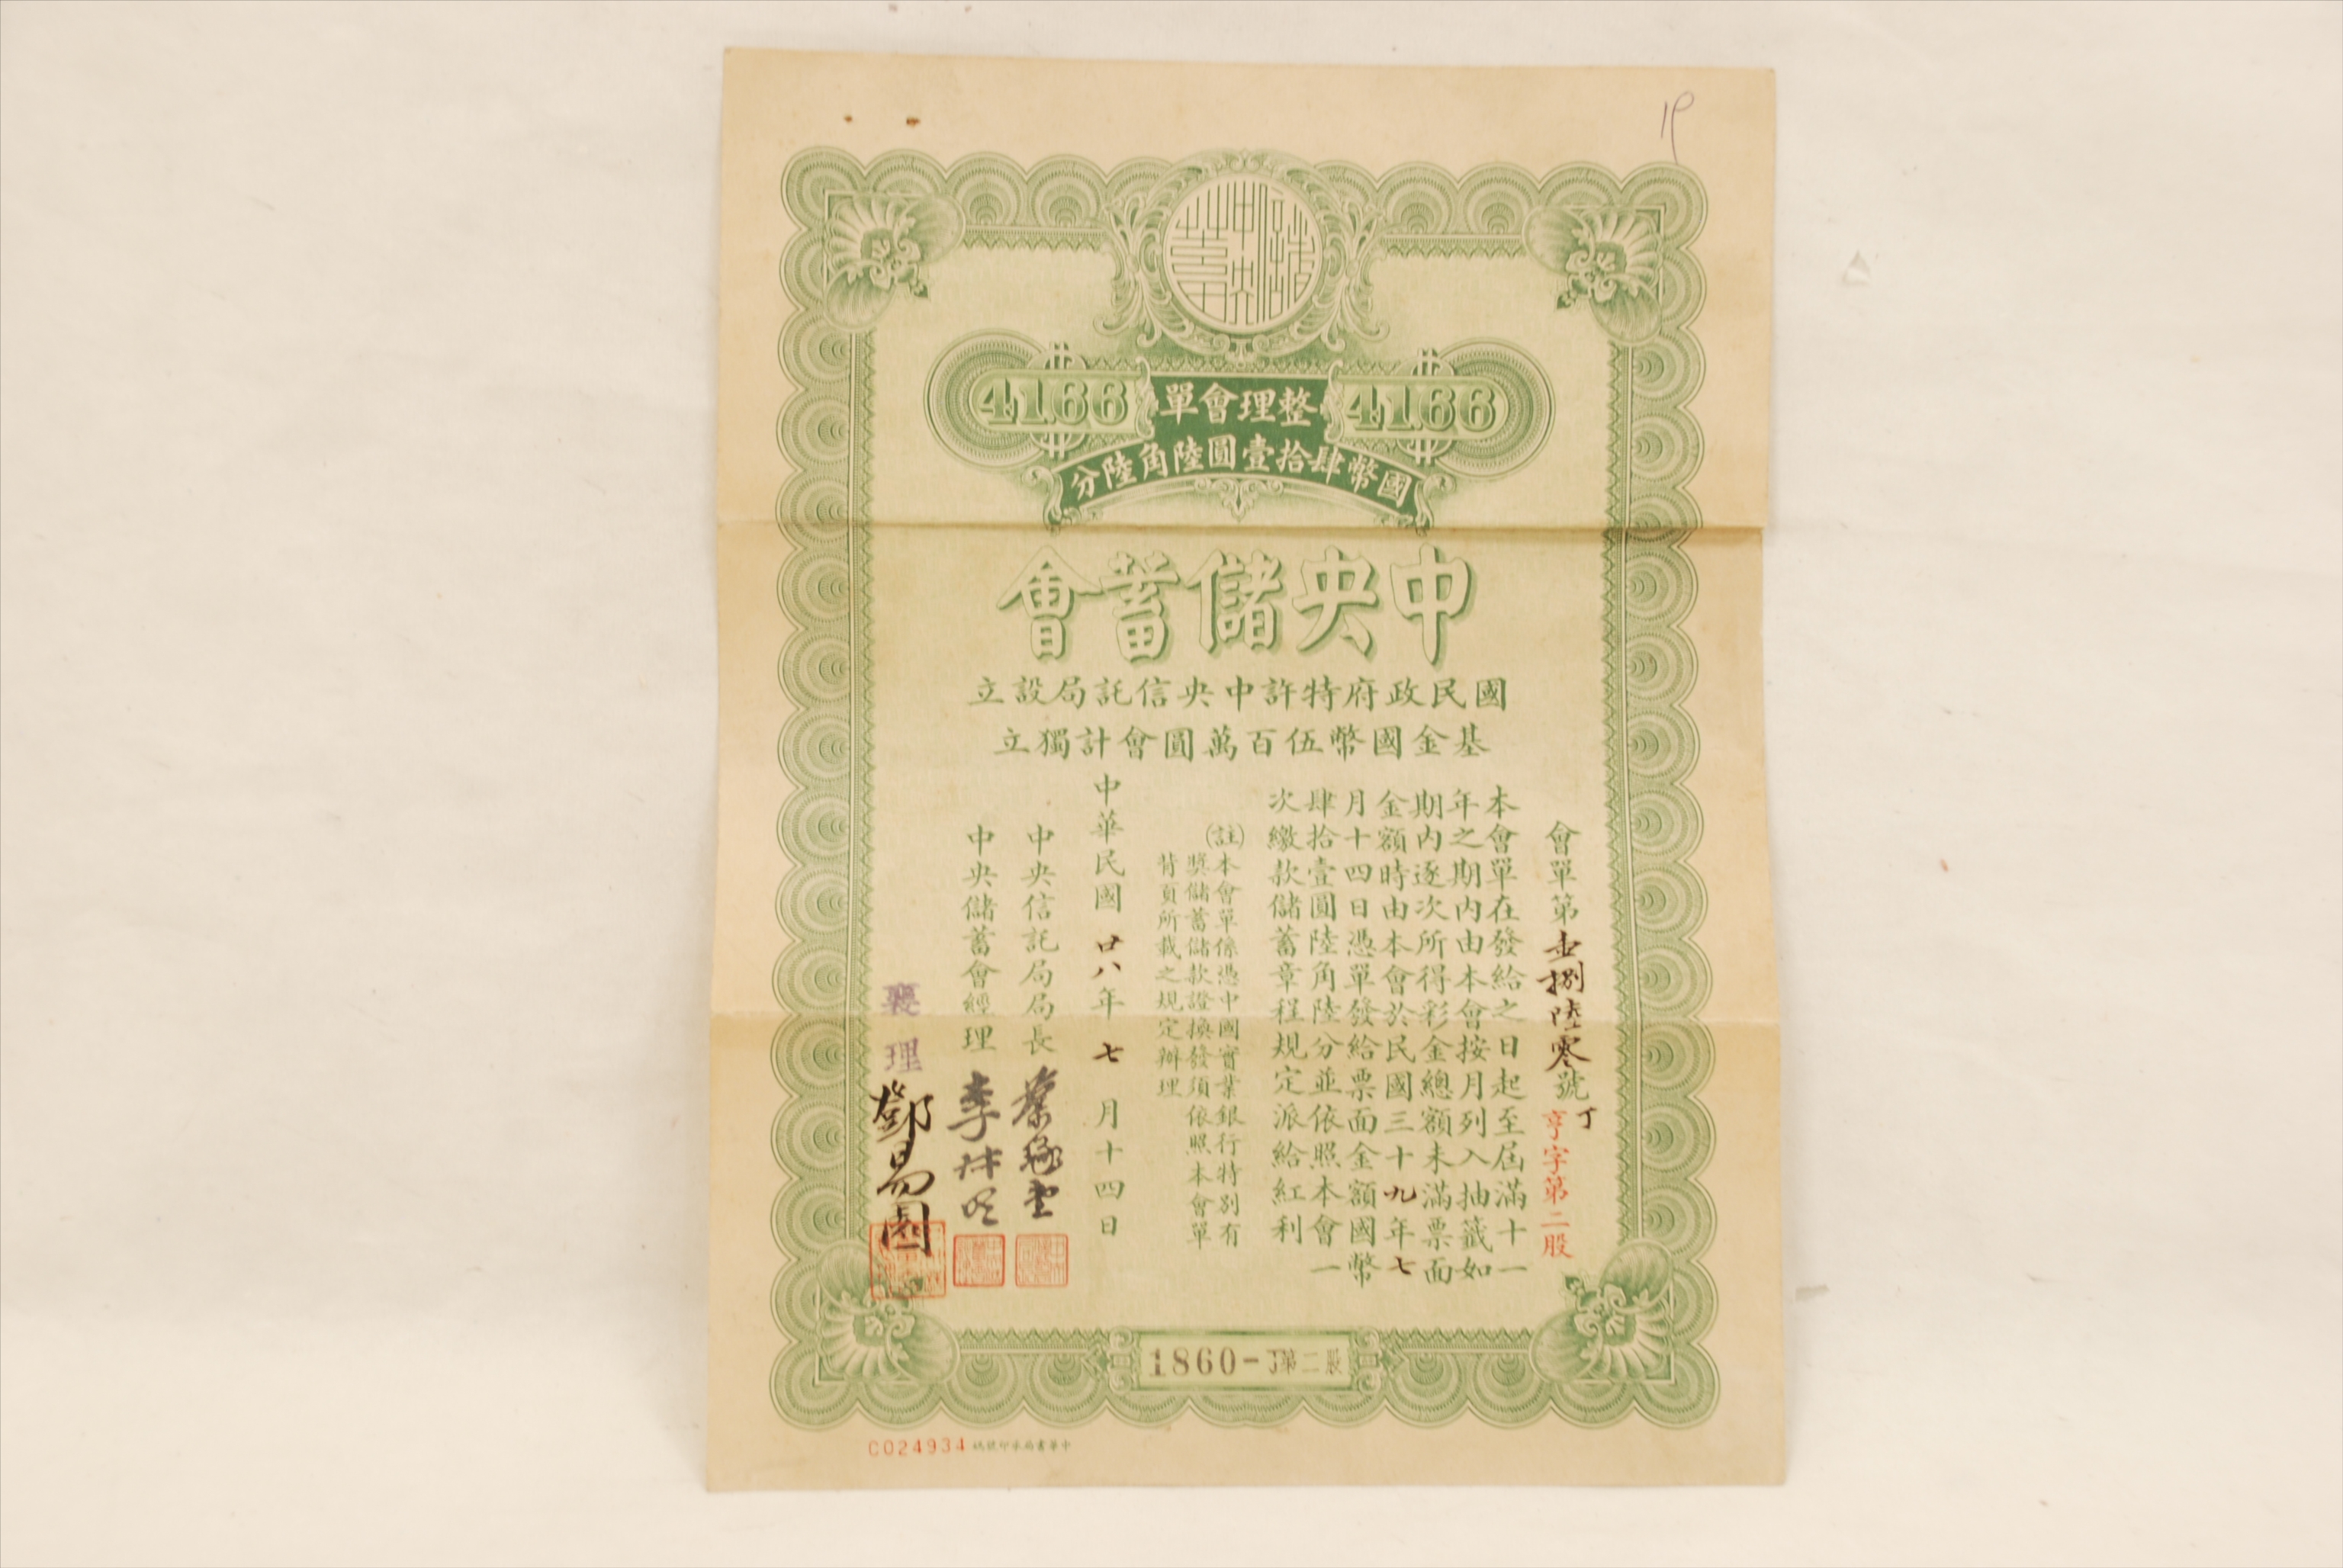 中央儲蓄會
4166
整理會單
4166
國幣肆拾壹圓陸角陸分
中央儲蓄會
國民政府特許中央信託局設立
基金國幣伍百萬圓會計獨立
會單第壹捌陸零號丁
亨字第二股
本會單在發給之日起至屆滿十一
年之期內由本會按月列入抽籤如
期內逐次所得彩金總額未滿票面
金額時由本會於民國三十九年七
月十四日憑單發給票面金額國幣
肆拾壹圓陸角陸分並依照本會一
次繳款儲蓄章程規定派給紅利
(註)本會單係憑中國實業銀行特別有
獎儲蓄儲款證換發須依照本會單
背頁所載之規定辦理
中華民國廿八年七月十四日
中央信託局局長
中央儲蓄會經理
襄理鄧易園
1860-丁第二股
C024934
中華書局承印號碼